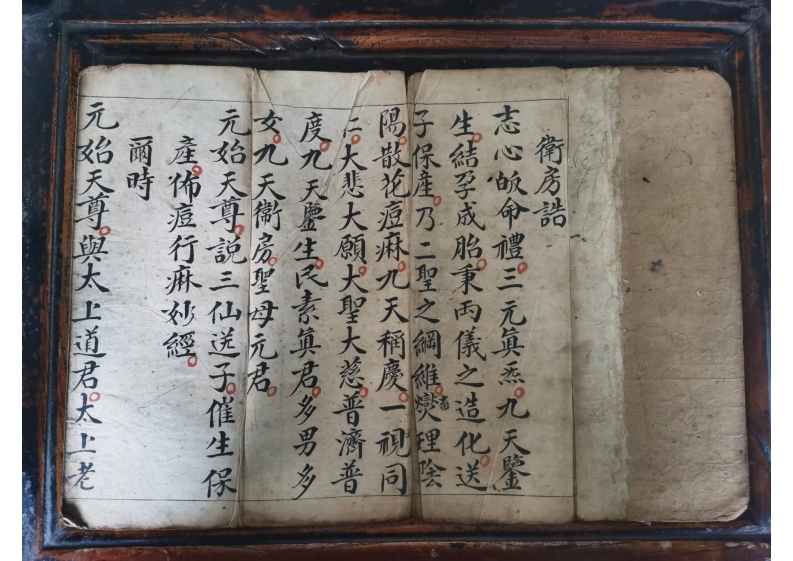 衛房誥
志心皈命禮三元真炁九天鑒
生結孕成胎秉両儀之造化送
子保產乃二聖之綱維燮理陰
陽散花痘麻九天稱慶一視同
仁大悲大願大聖大慈普濟普
度九天鑒生民素真君多男多
女九天衛房聖母元君
元始天尊說三仙送子催生保
產佈痘行麻妙經
爾時
元始天尊與太上道君太上老